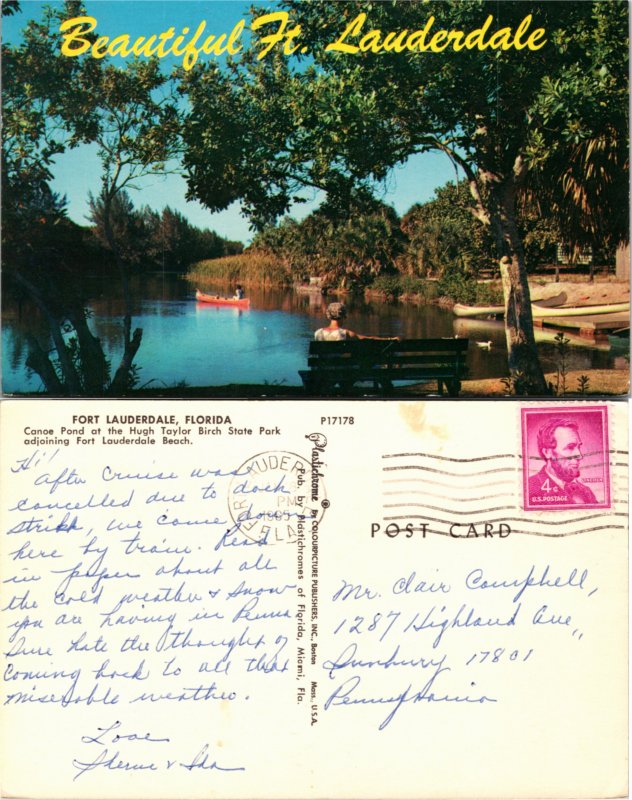 Beautiful Ft. Lauderdale
FORT LAUDERDALE, FLORIDA
Canoe Pond at the Hugh Taylor Birch State Park
adjoining Fort Lauderdale Beach.
P17178
Hi!
After Cruise was
cancelled due to dock
strike, we came down
here by train. Read
in papers about all
the cold weather & snow
you are having in Penna
Sure hate the thought of
coming back to all that
miserable weather.
Love
& Ida
Plastichrome ® by COLOURPICTURE PUBLISHERS, INC., Boston Mass., U.S.A.
Pub. by Plastichromes of Florida, Miami, Fla.
PM
1965
FLA
4¢
LINCOLN
U.S. POSTAGE
POST CARD
Mr. Clair Campbell,
1287 Highland Ave,
Sunbury 17801
Pennsylvania